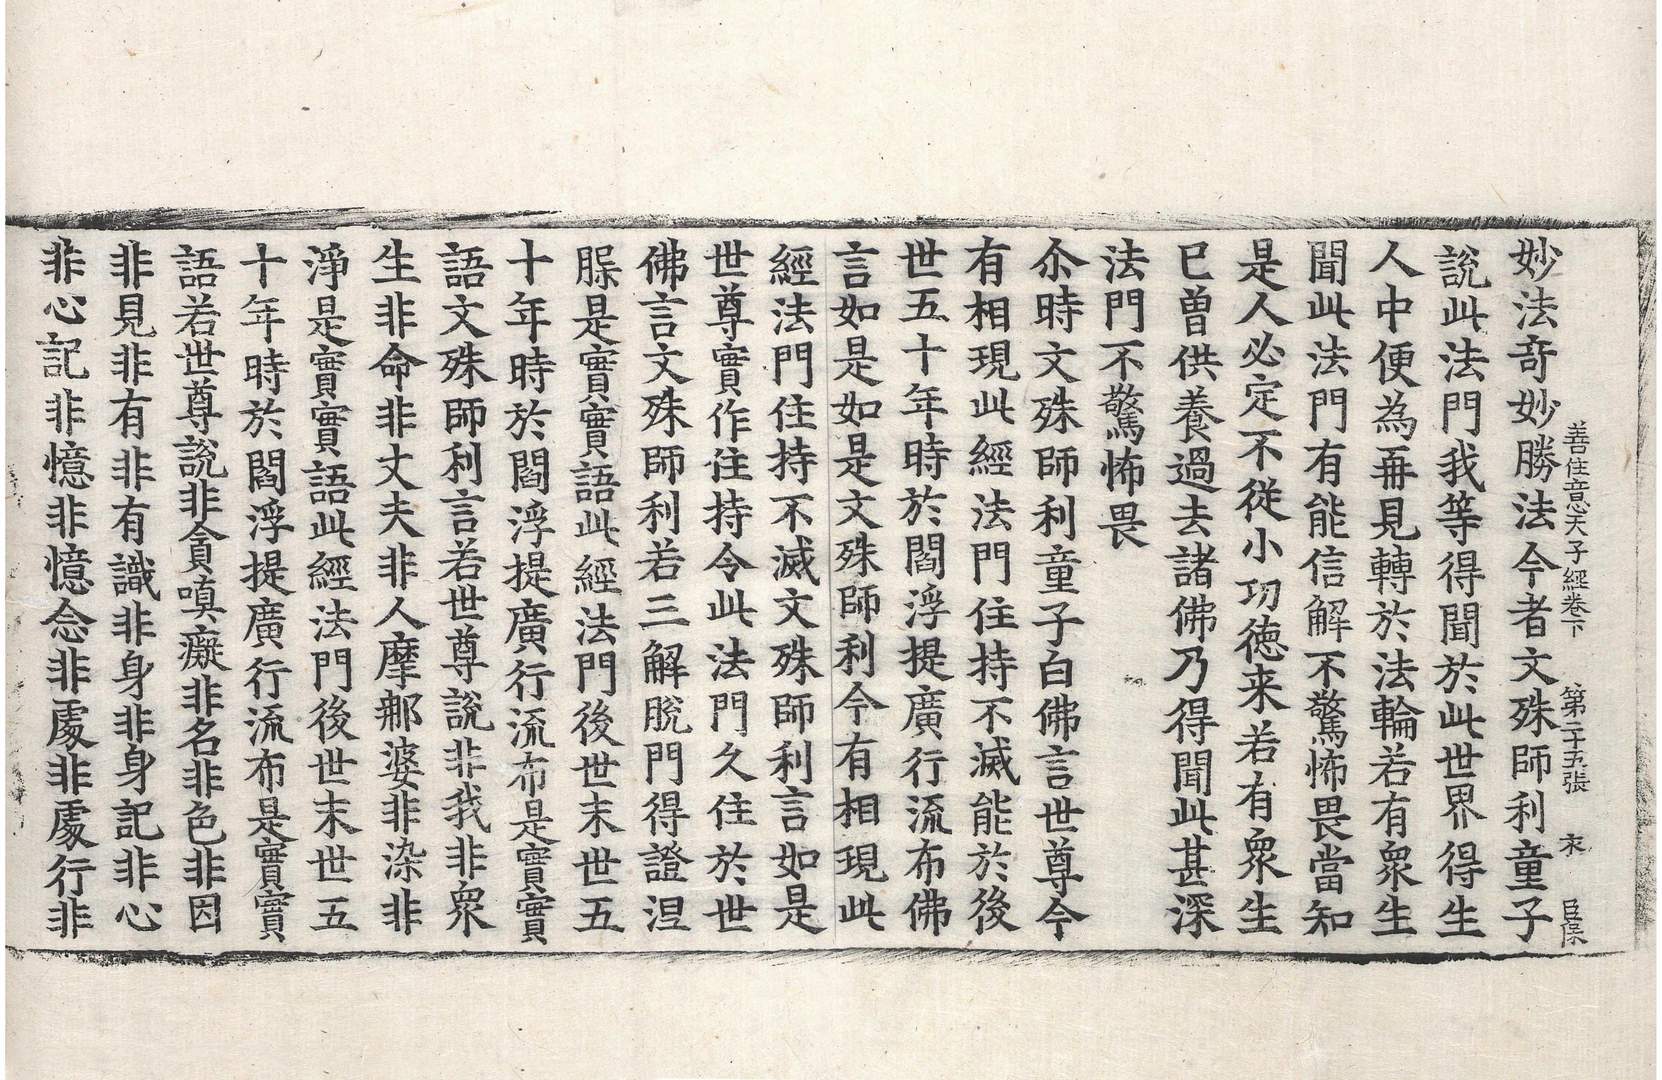 善住意天子經卷下 第二十五張 末 臣保
妙法奇妙勝法今者文殊師利童子
說此法門我等得聞於此世界得生
人中便為再見轉於法輪若有衆生
聞此法門有能信解不驚怖畏當知
是人必定不從小功德来若有衆生
已曾供養過去諸佛乃得聞此甚深
法門不驚怖畏
尒時文殊師利童子白佛言世尊今
有相現此經法門住持不滅能於後
世五十年時於閻浮提廣行流布佛
言如是如是文殊師利今有相現此
經法門住持不滅文殊師利言如是
世尊實作住持令此法門久住於世
佛言文殊師利若三解脫門得證涅
脲是實實語此經法門後世末世五
十年時於閻浮提廣行流布是實實
語文殊師利言若世尊說非我非衆
生非命非丈夫非人摩那婆非染非
淨是實實語此經法門後世末世五
十年時於閻浮提廣行流布是實實
語若世尊說非貪嗔癡非名非色非因
非見非有非有識非身非身記非心
非心記非憶非憶念非處非處行非